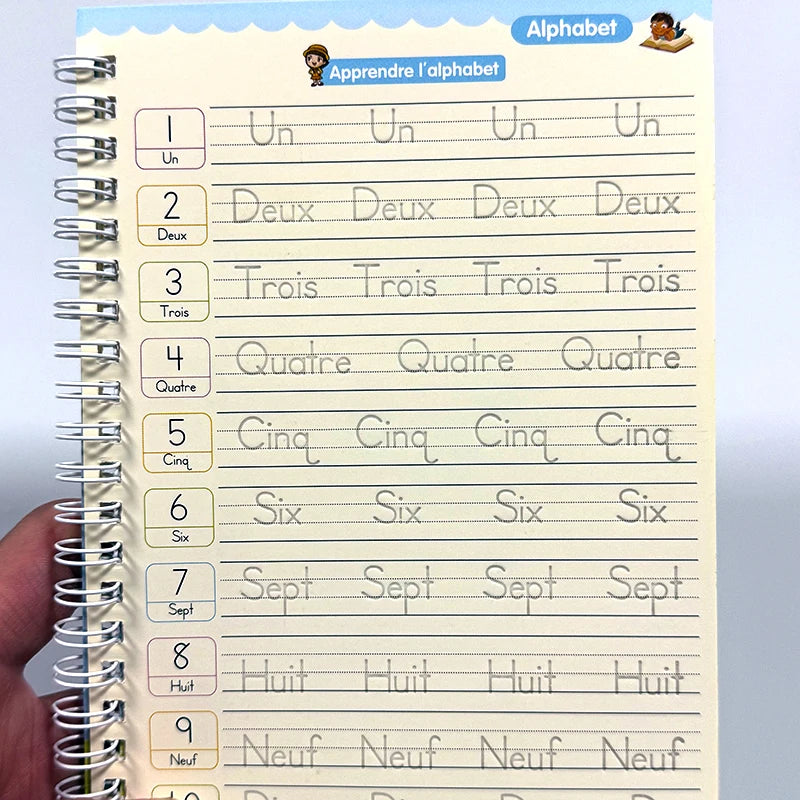 Alphabet
Apprendre l'alphabet
1 Un Un Un Un
Un
2 Deux Deux Deux Deux
Deux
3 Trois Trois Trois Trois
Trois
4 Quatre Quatre Quatre
Quatre
5 Cinq Cinq Cinq Cinq
Cinq
6 Six Six Six Six
Six
7 Sept Sept Sept Sept
Sept
8 Huit Huit Huit Huit
Huit
9 Neuf Neuf Neuf Neuf
Neuf
10